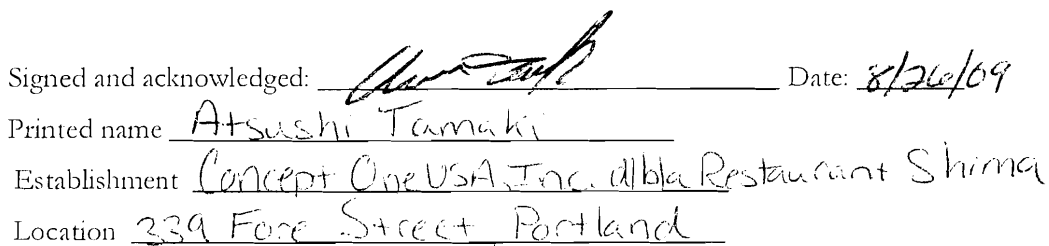 Signed and acknowledged: Date: 8/26/09
Printed name Atsushi Tamaki
Establishment Concept One USA, Inc. d/b/a Restaurant Shima
Location 339 Fore Street Portland